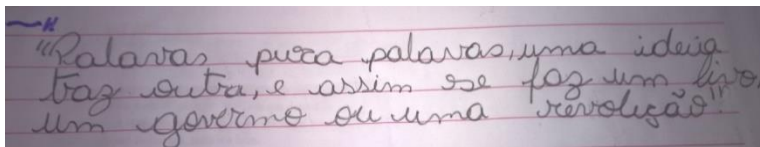 "Palavas puxa palavras, uma ideia
traz outra, e assim se faz um livro,
um governo ou uma revolução".